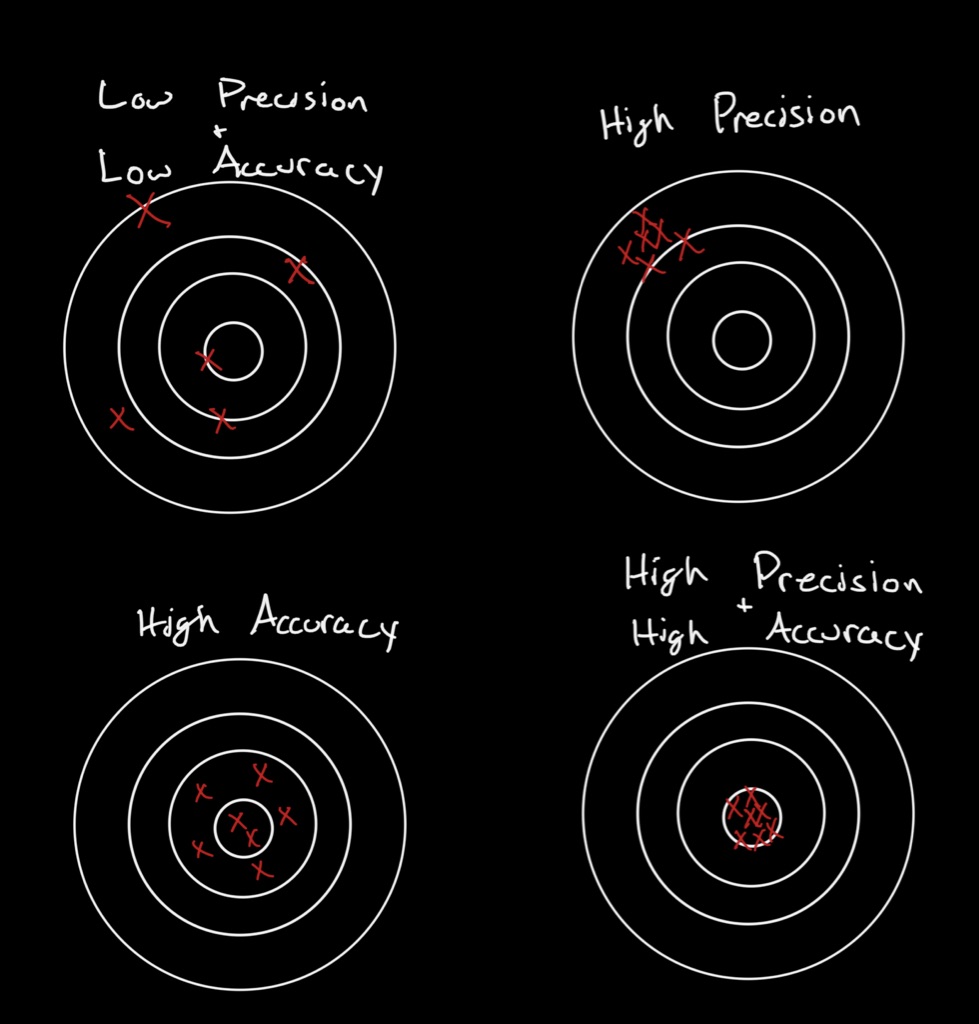 Low Precision
+
Low Accuracy
High Precision
High Accuracy
High Precision
+
High Accuracy